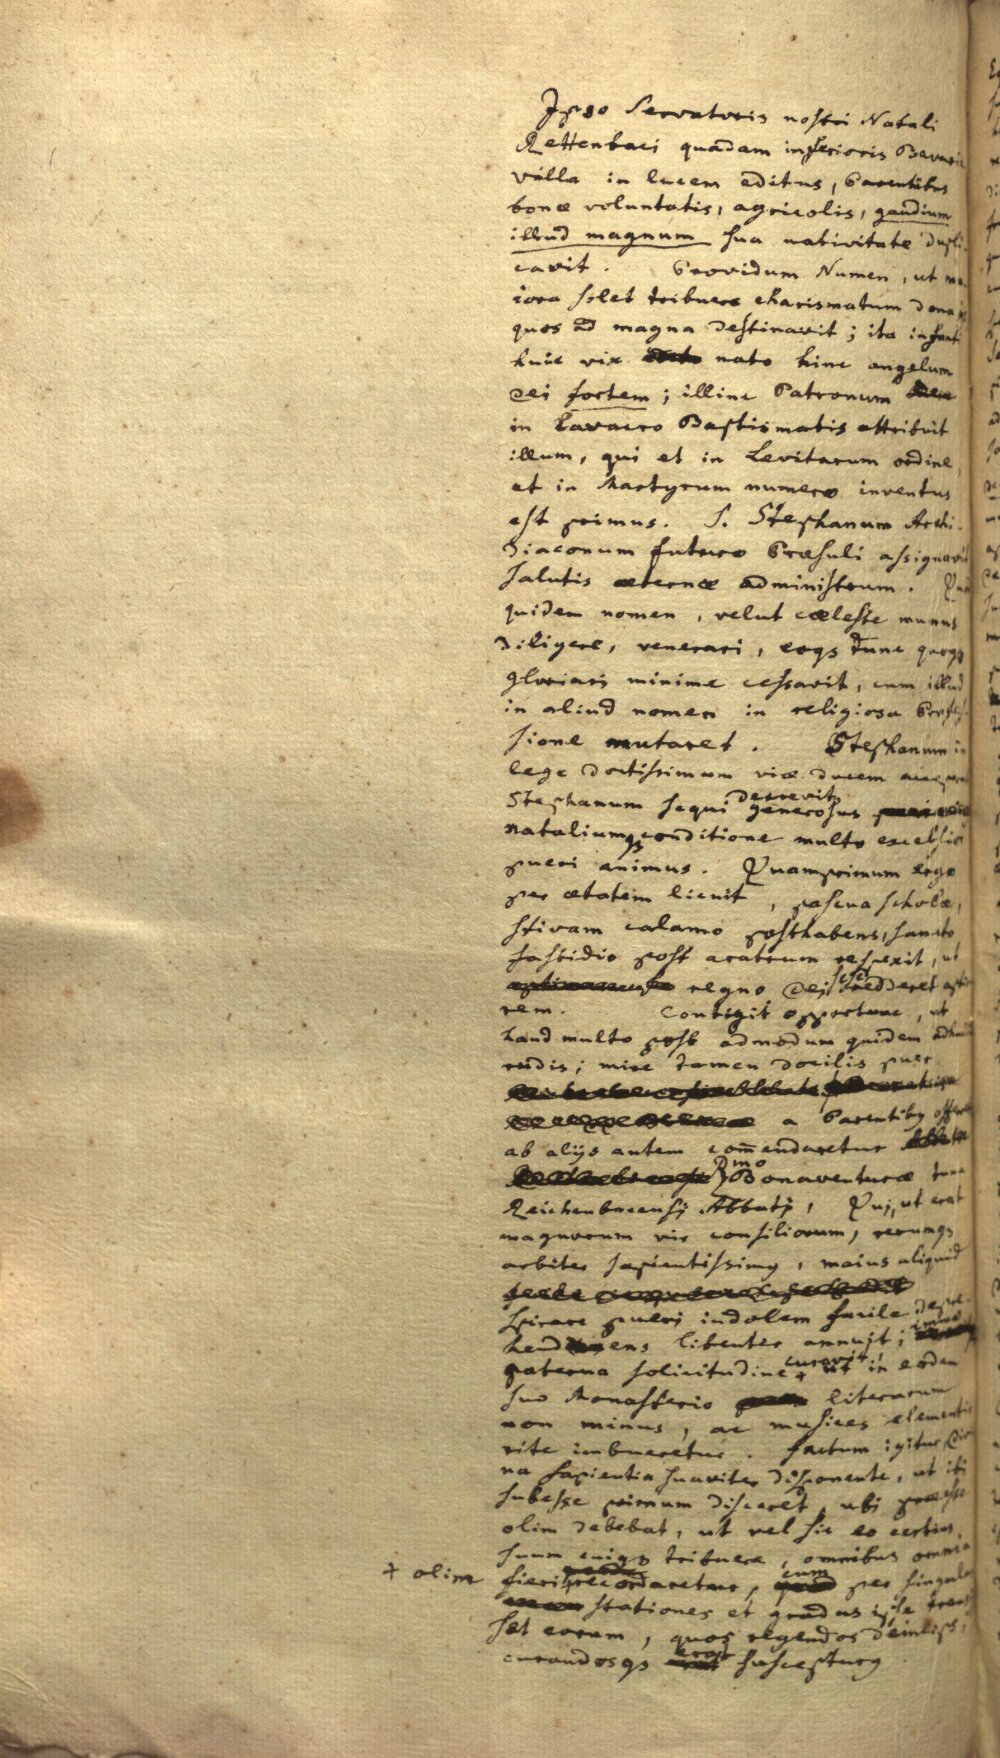 Ipso Servatoris nostri Natali
Rettenbaci quadam inferioris Bavariæ
villa in lucem editus, Parentibus
bonæ voluntatis, agricolis, gaudium
illud magnum sua nativitate dupli-
cavit. Providum Numen, ut ma-
iora solet tribuere charismatum dona
quos ad magna destinavit; ita infanti
huic vix nato hinc angelum
Dei fortem; illinc Patronum
in Lavacro Baptismatis attribuit
illum, qui et in Levitarum ordine
et in Martyrum numero inventus
est primus. S. Stephanum Archi-
diaconum futuro Præsuli assignavit
salutis æternæ administrum.
quidem nomen, velut cæleste munus
diligere, venerari, eoqs tunc quoqs
gloriari minime cessavit, cum illud
in aliud nomen in religiosa Profes-
sione mutaret. Stephanum in
lege doctissimum viæ ducem
Stephanum sequi decrevit generosus
nataliumqs conditione multo excelsior
pueri animus. Quamprimum ergo
per ætatem licuit, pascua scholæ,
stivam calamo posthabens, sancto
fastidio post aratrum respexit, ut
regno Dei sese redderet apti
rem. Contigit opportune, ut
haud multo post admodum quidem adhuc
rudis; mire tamen docilis puer
a Parentibus
ab alijs autem com̄endaretur
Dmo Bonaventuræ tunc
Reichenbacensi Abbati, Qui, ut erat
magnorum vir consiliorum, rerumqs
arbiter sapientissimus, maius aliquid
spirare pueri indolem facile depre-
hendens libenter annuit; immo
paterna solicitudine curavit, ut in eodem
suo Monasterio literarum
non minus, ac musices elementis
rite imbueretur. factum igitur Divi
na sapientia suaviter disponente, ut ibi
subesse primum disceret, ubi præesse
olim debebat, ut vel sic eo certius
suum cuiqs tribuere, omnibus omnia
+ olim fieri recordaretur, cum per singulas
stationes et gradus ipse
set eorum, quos regendos
curandosqs erat suscepturus